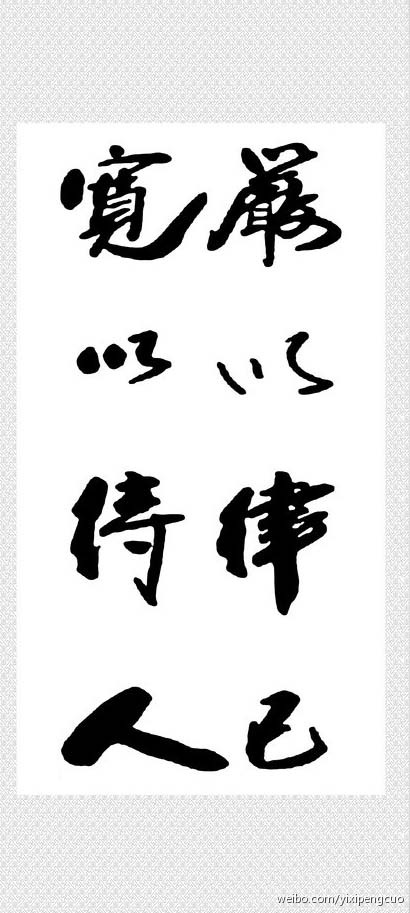 嚴以律己
寬以待人
weibo.com/yixipengcuo